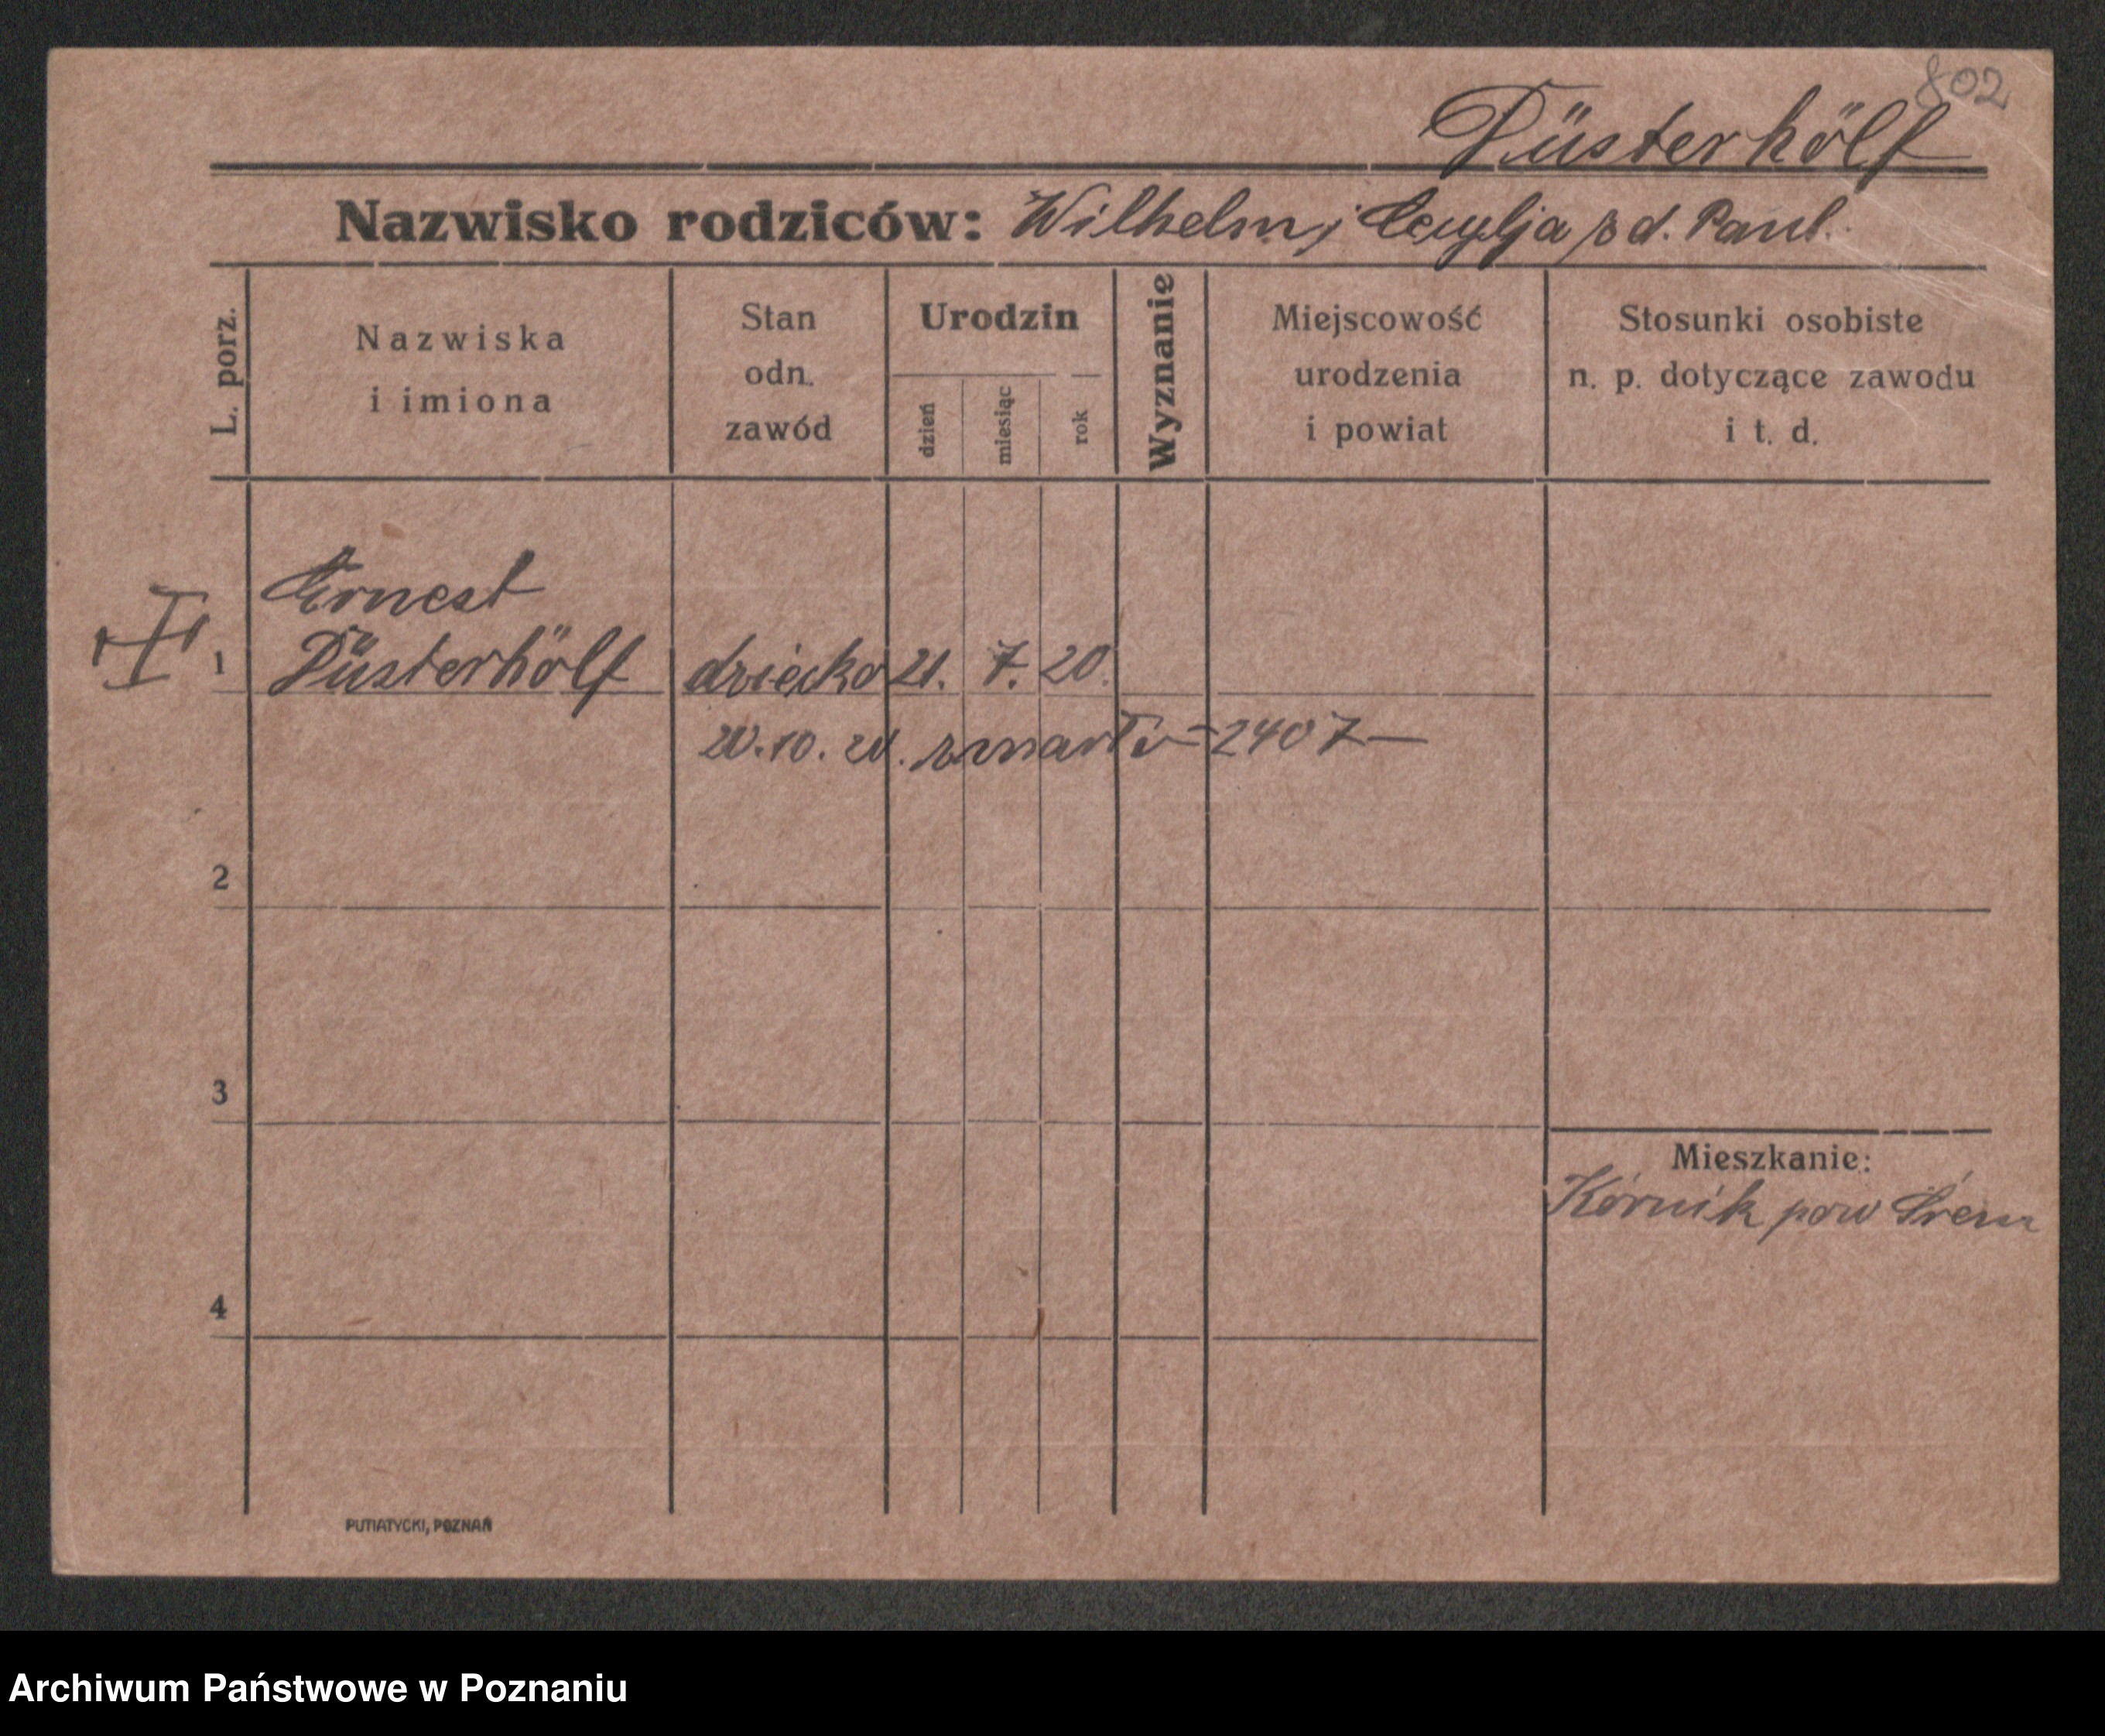 802
Düsterhölf
Nazwisko rodziców: Wilhelm, Cecylja z d. Paul.
L. porz.
Nazwiska
i imiona
Stan
odn.
zawód
Urodzin
dzień
miesiąc
rok
Wyznanie
Miejscowość
urodzenia
i powiat
Stosunki osobiste
n. p. dotyczące zawodu
i t. d.
Ernest
1 Düsterhölf dziecko 21. 7. 20.
20.10. zmarł 2407
2
3
Mieszkanie:
Kórnik pow Śrem
4
PUTIATYCKI, POZNAŃ
Archiwum Państwowe w Poznaniu